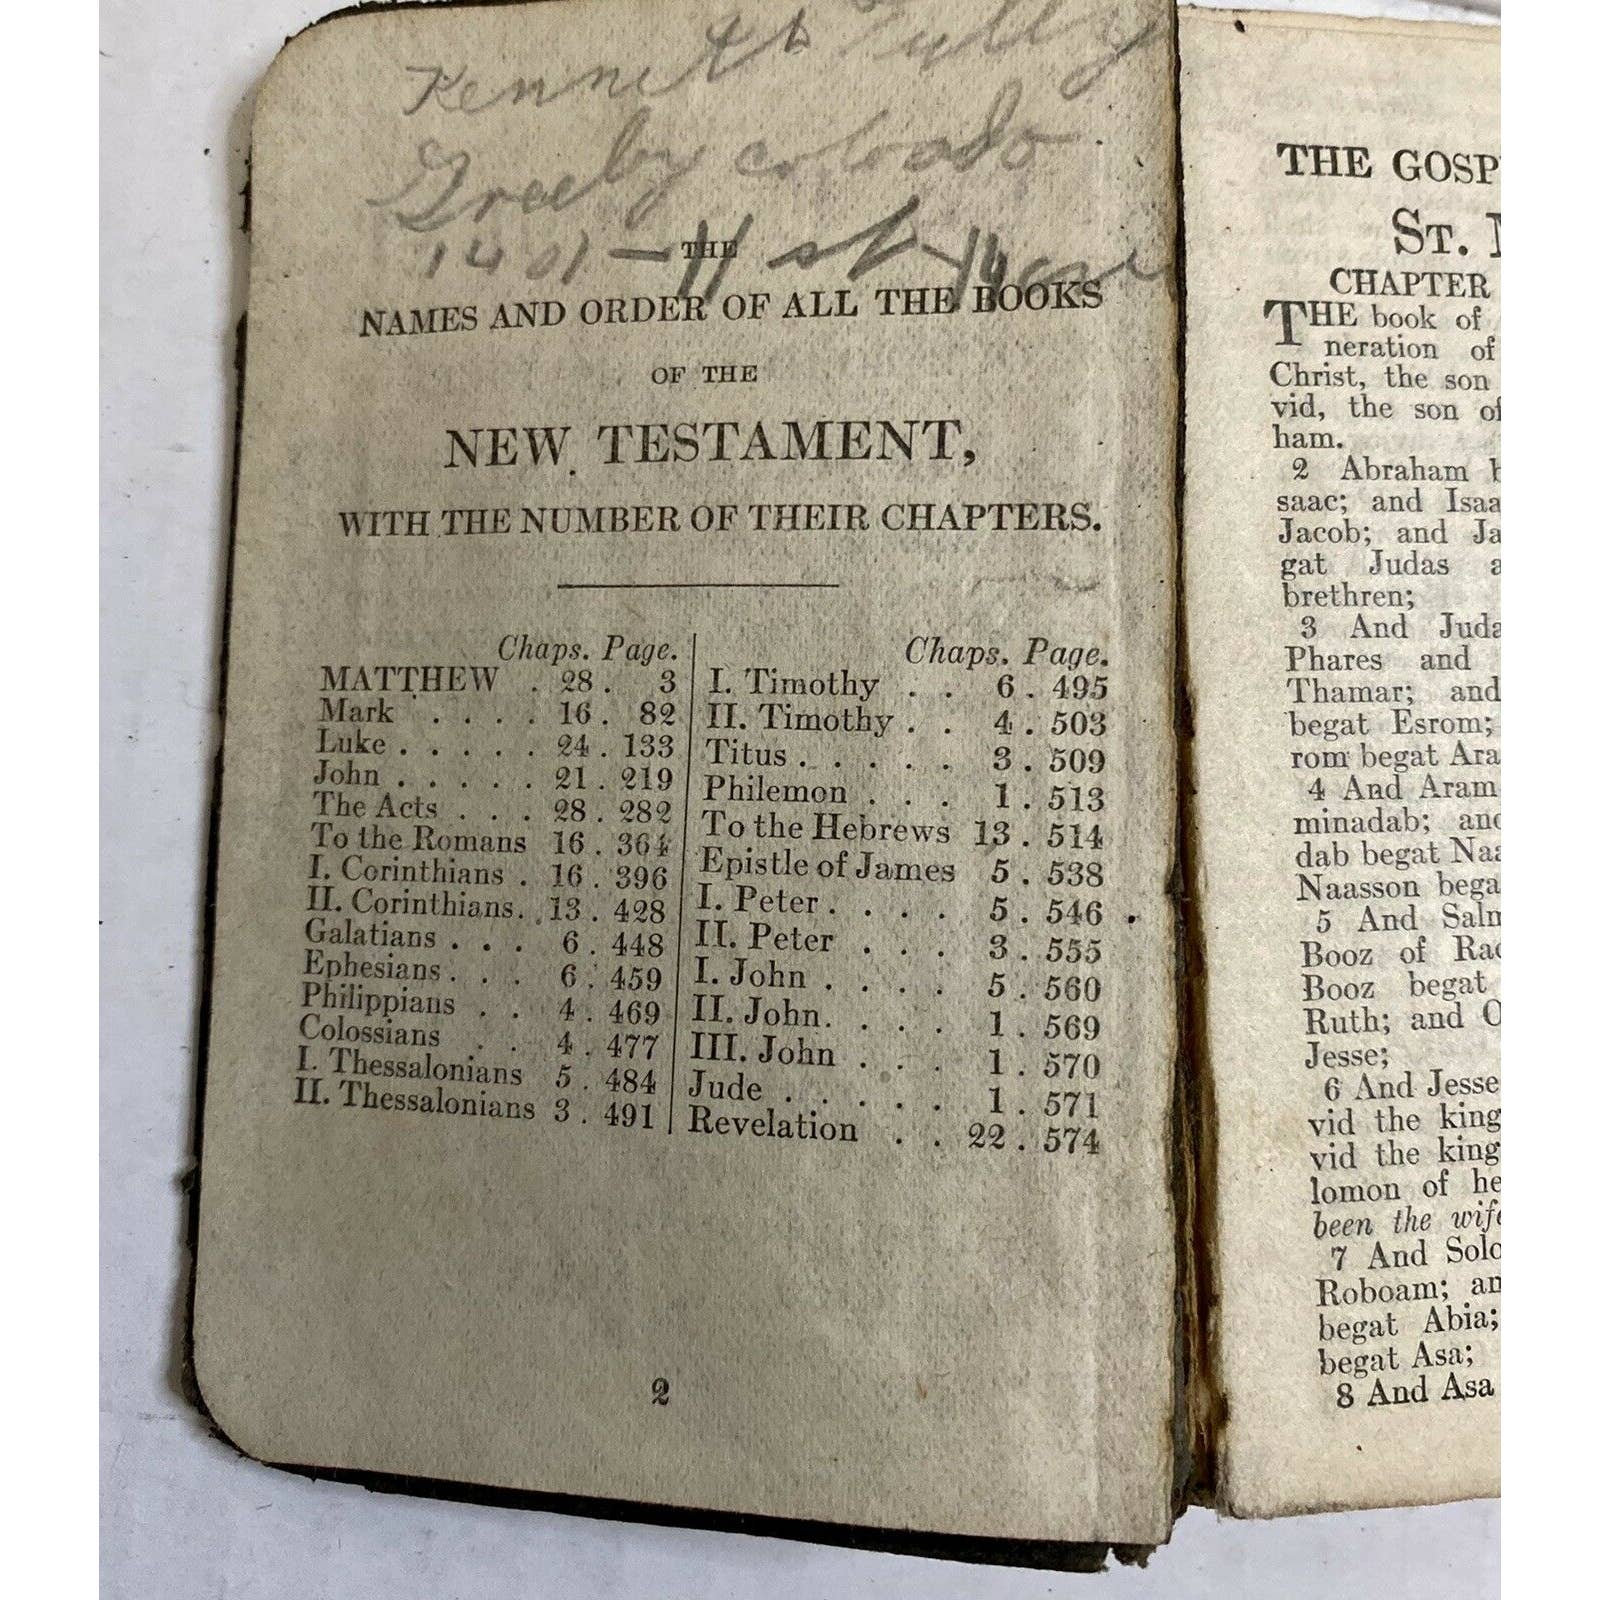 Kenneth Tully
Greeley colorado
1401 - 11 st - 14 ave
THE
NAMES AND ORDER OF ALL THE BOOKS
OF THE
NEW TESTAMENT,
WITH THE NUMBER OF THEIR CHAPTERS.
Chaps. Page.
MATTHEW . 28 . 3
Mark . . . . 16 . 82
Luke . . . . . 24 . 133
John . . . . . 21 . 219
The Acts . . . 28 . 282
To the Romans 16 . 364
I. Corinthians . 16 . 396
II. Corinthians . 13 . 428
Galatians . . . 6 . 448
Ephesians . . . 6 . 459
Philippians . . 4 . 469
Colossians . . 4 . 477
I. Thessalonians 5 . 484
II. Thessalonians 3 . 491
Chaps. Page.
I. Timothy . . 6 . 495
II. Timothy . . 4 . 503
Titus . . . . . 3 . 509
Philemon . . . 1 . 513
To the Hebrews 13 . 514
Epistle of James 5 . 538
I. Peter . . . . 5 . 546
II. Peter . . . 3 . 555
I. John . . . . 5 . 560
II. John . . . . 1 . 569
III. John . . . 1 . 570
Jude . . . . . 1 . 571
Revelation . . 22 . 574
2
THE GOSP
ST.
CHAPTER
THE book of
neration of
Christ, the son
vid, the son of
ham.
2 Abraham b
saac; and Isaa
Jacob; and Ja
gat Judas a
brethren;
3 And Juda
Phares and
Thamar; and
begat Esrom;
rom begat Ara
4 And Aram
minadab; and
dab begat Naa
Naasson bega
5 And Salm
Booz of Rac
Booz begat
Ruth; and O
Jesse;
6 And Jesse
vid the king
vid the king
lomon of he
been the wife
7 And Solo
Roboam; an
begat Abia;
begat Asa;
8 And Asa